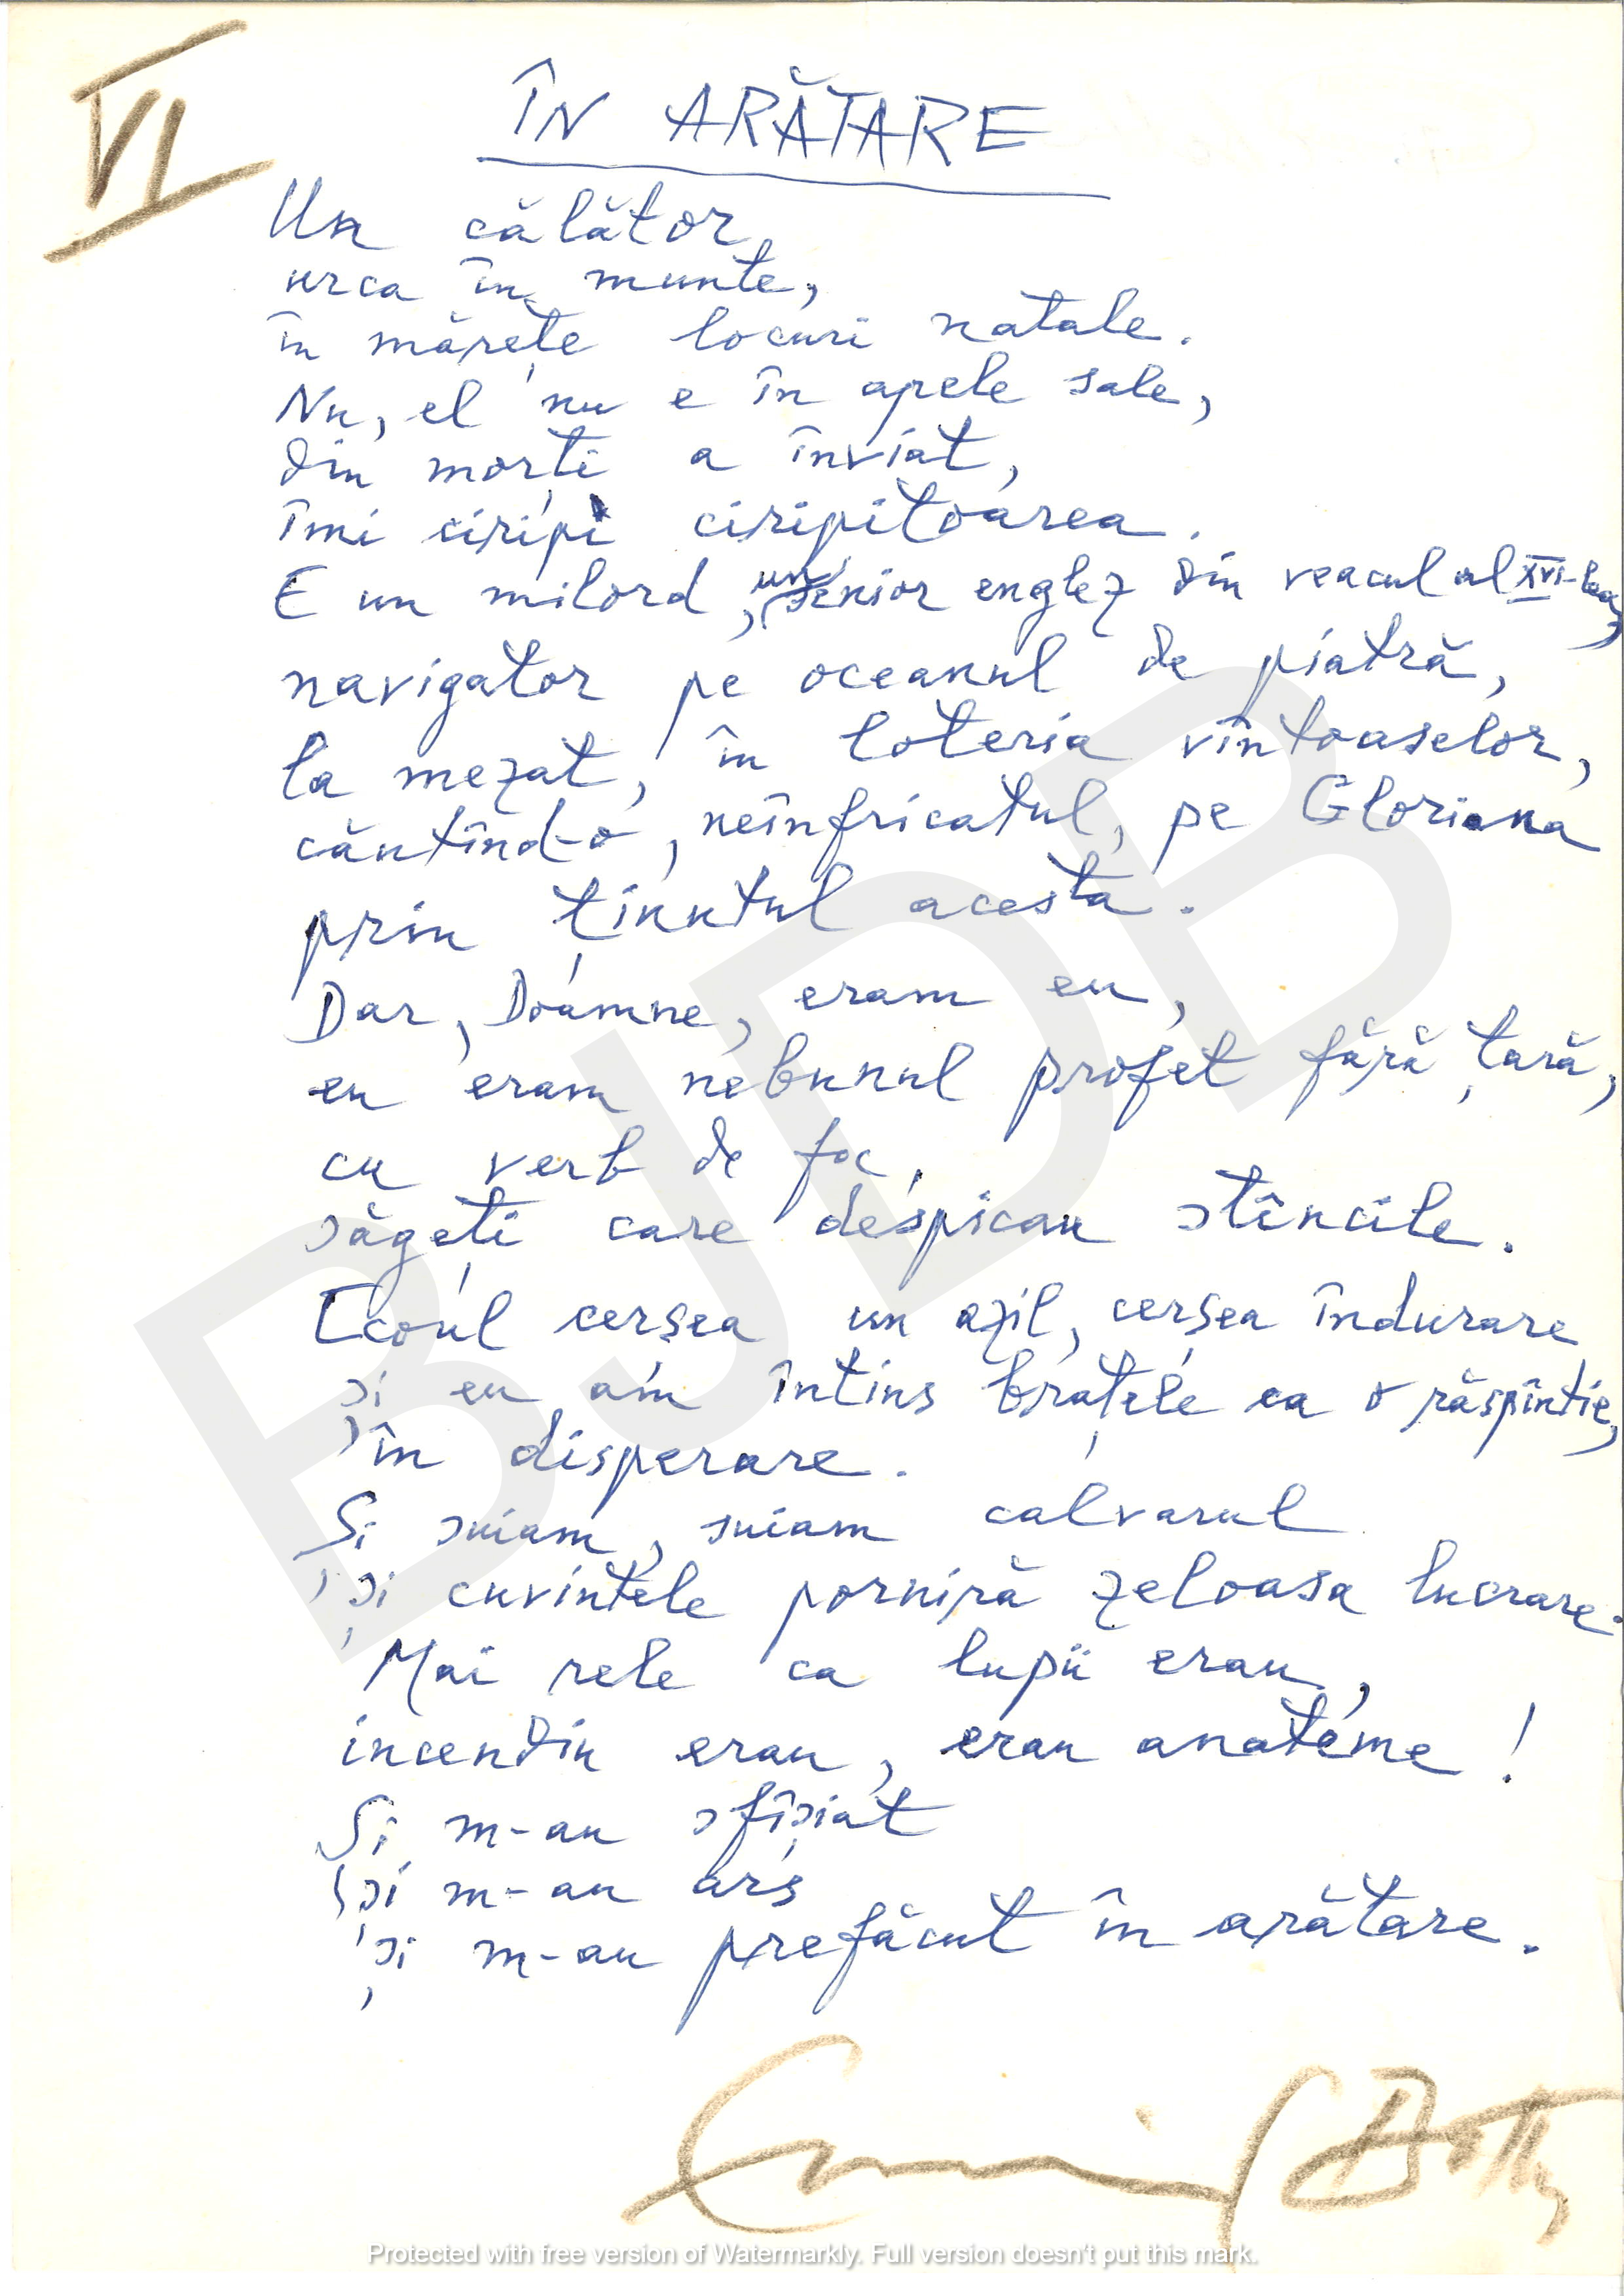 VI
ÎN ARĂTARE
Un călător,
urca în munte,
în mărețe locuri natale.
Nu, el nu e în apele sale,
din morți a înviat,
îmi ciripi ciripitoarea.
E un milord, un senior englez din veacul al XVI-lea,
navigator pe oceanul de piatră,
la mezat, în loteria vîntoaselor,
căntînd-o, neînfricatul, pe Gloriana
prin ținutul acesta.
Dar, Doamne, eram eu,
eu eram nebunul profet fără țară,
cu verb de foc,
săgeți care despicau stîncile.
Ecoul cerșea un azil, cerșea îndurare
și eu am întins brațele ca o răspîntie,
în disperare.
Și suiam, suiam calvarul
și cuvintele porniră zeloasa lucrare.
Mai rele ca lupii erau,
incendiu erau, erau anateme!
Și m-au sfîșiat
și m-au ars
și m-au prefăcut în arătare.
Emil Botta
BJDB
Protected with free version of Watermarkly. Full version doesn't put this mark.